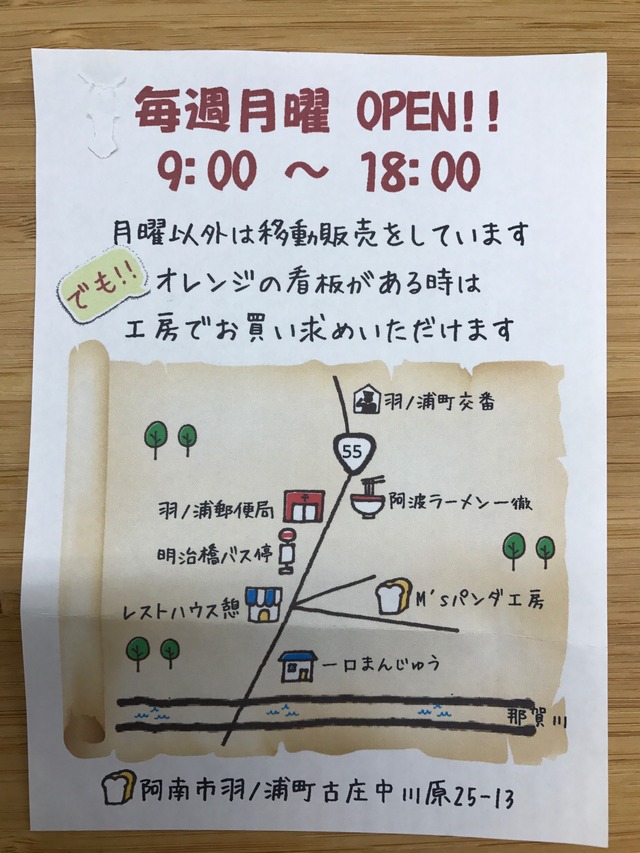 毎週月曜 OPEN!!
9:00 ～ 18:00
月曜以外は移動販売をしています
でも!!
オレンジの看板がある時は
工房でお買い求めいただけます
羽ノ浦町交番
55
羽ノ浦郵便局
阿波ラーメン一徹
明治橋バス停
レストハウス憩
M'sパンダ工房
一口まんじゅう
那賀川
阿南市羽ノ浦町古庄中川原25-13